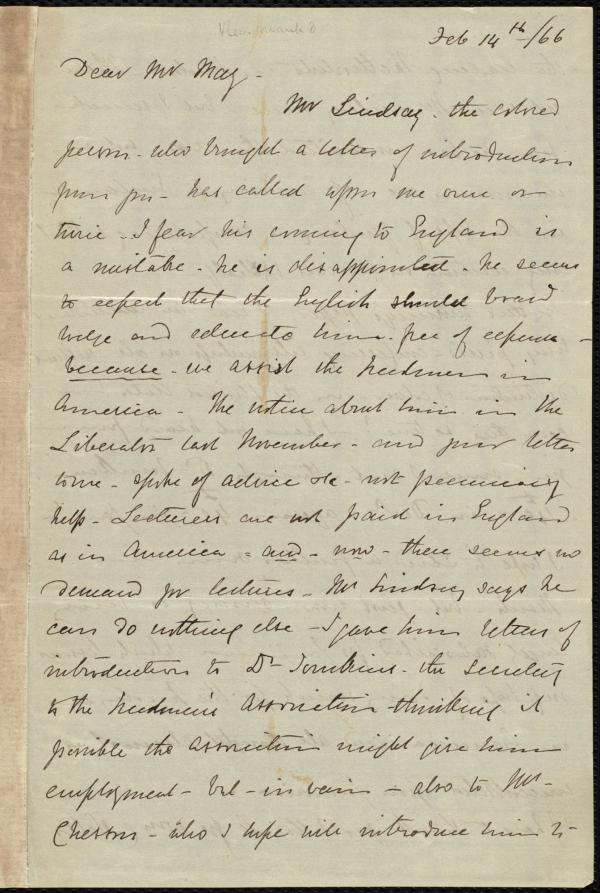 Feb 14th/66
Dear Mr May -
Mr Lindsay - the colored
person - who brought a letter of introduction
from you - has called upon me once or
twice - I fear his coming to England is
a mistake - he is disappointed - he seems
to expect that the English should board
lodge and educate him - free of expense -
because - we assist the freedmen in
America - The notice about him in the
Liberator last November - and your letter
to me - spoke of advice &c - not pecuniary
help - Lecturers are not paid in England
as in America - and - now - there seems no
demand for lectures - Mr Lindsay says he
can do nothing else - I gave him letters of
introduction to Dr Tomkins - the Secretary
to the Freedmen's Association - thinking it
possible the Association might give him
employment - but - in vain - also to Mr -
Chesson - who I hope will introduce him to -